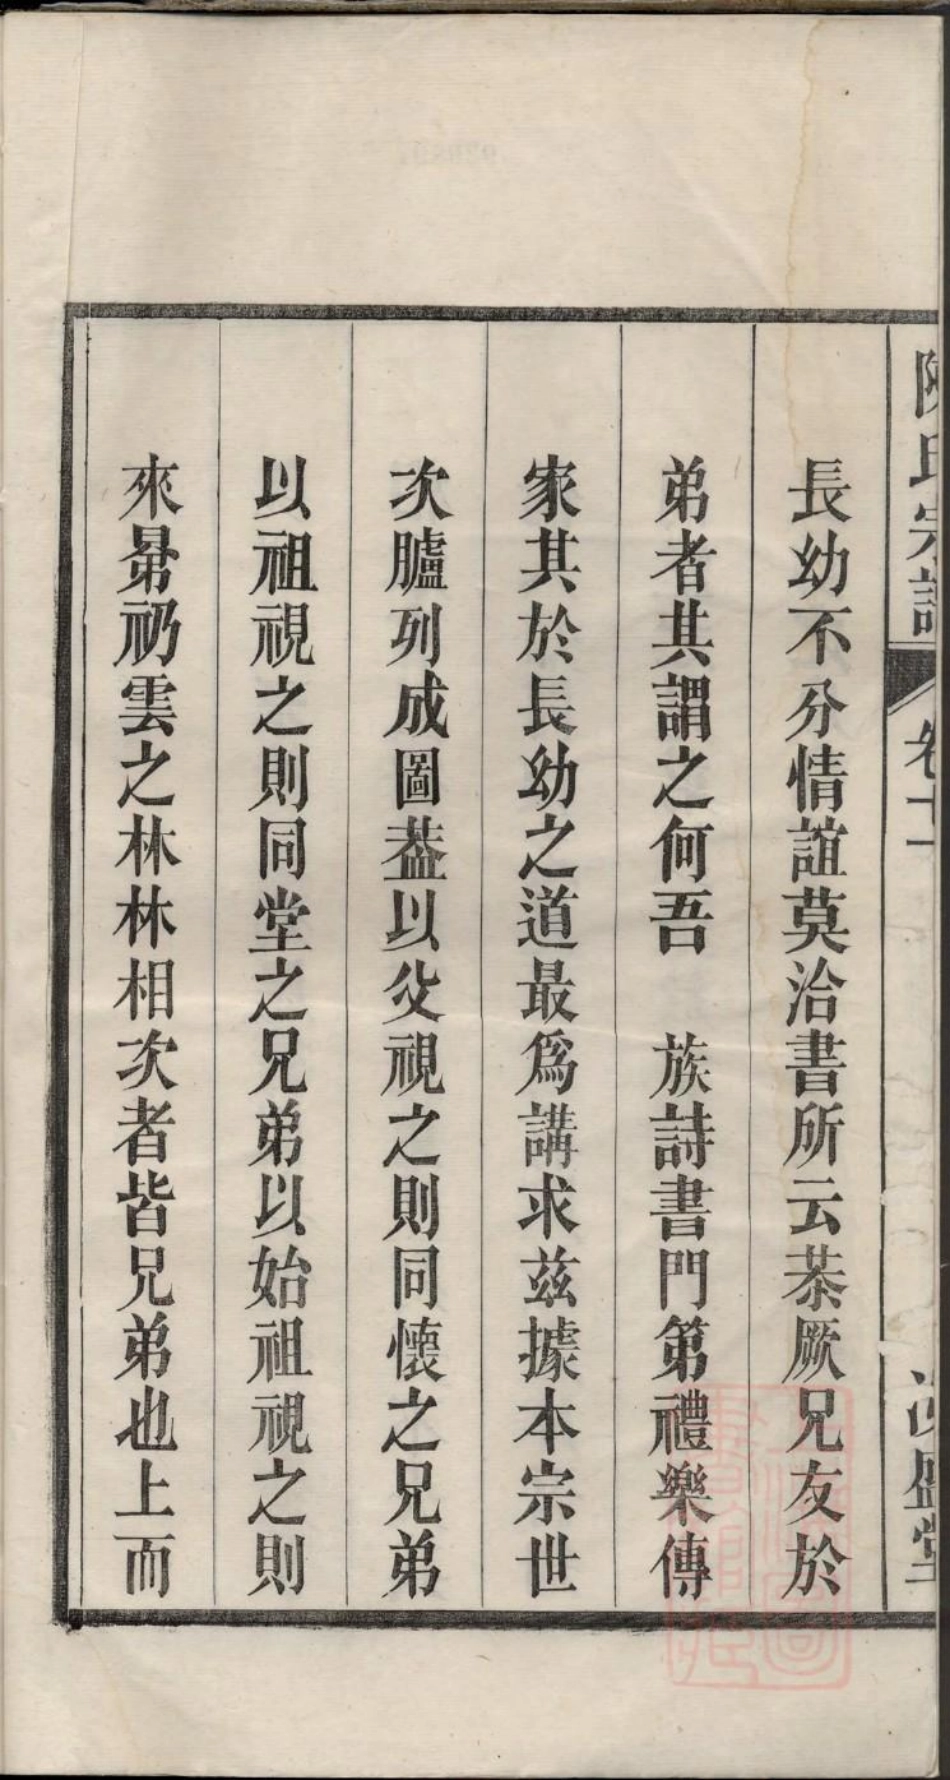 陳氏宗譜 卷十一 盛堂
長幼不分情誼莫洽書所云恭厥兄友於
弟者其謂之何吾 族詩書門第禮樂傳
家其於長幼之道最爲講求茲據本宗世
次臚列成圖葢以父視之則同懷之兄弟
以祖視之則同堂之兄弟以始祖視之則
來晜礽雲之林林相次者皆兄弟也上而